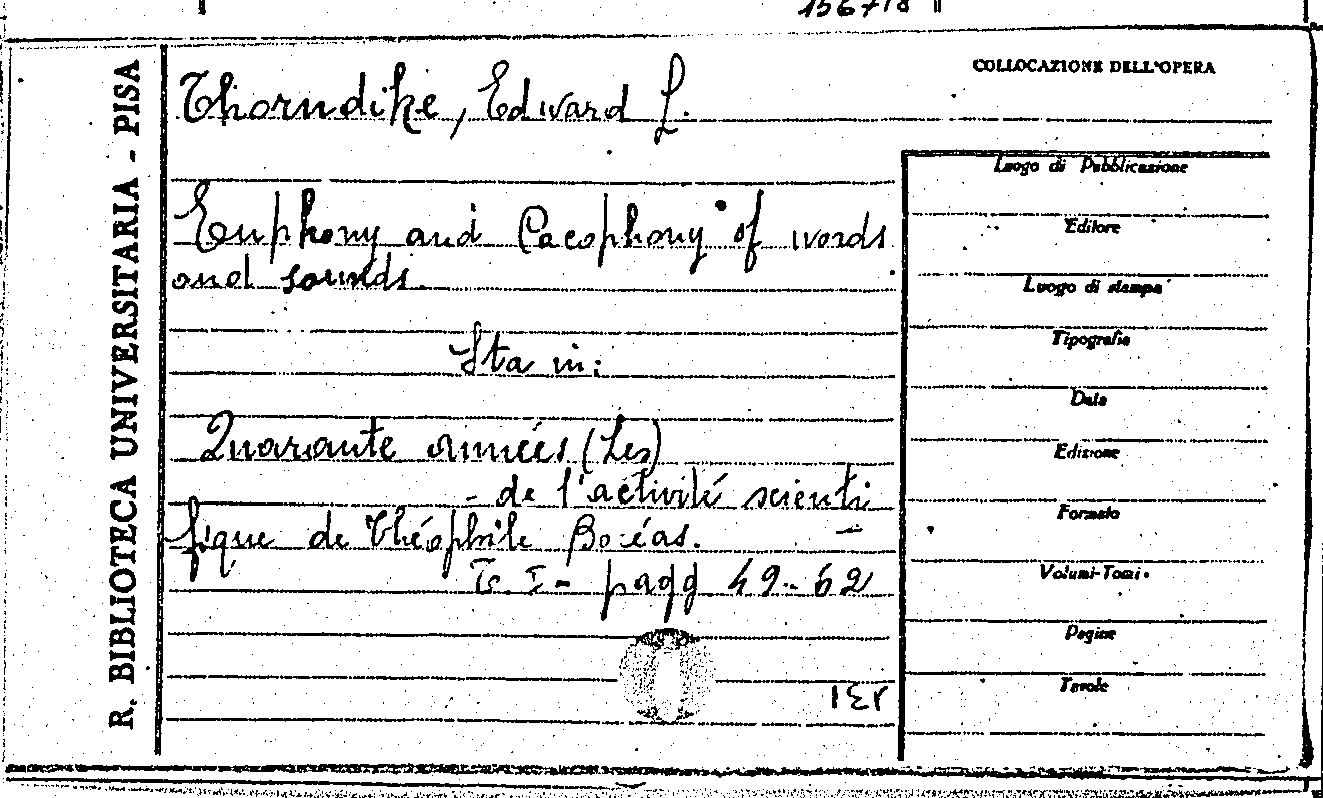 R. BIBLIOTECA UNIVERSITARIA - PISA
COLLOCAZIONE DELL'OPERA
Thorndike, Edward L.
Euphony and Cacophony of words
and sounds.
Sta in:
Quarante années (Les)
- de l'activité scienti
fique de Théophile Boréas.
T. I - pagg 49-62
Luogo di Pubblicazione
Editore
Luogo di stampa
Tipografia
Data
Edizione
Formato
Volumi-Tomi
Pagine
Tavole